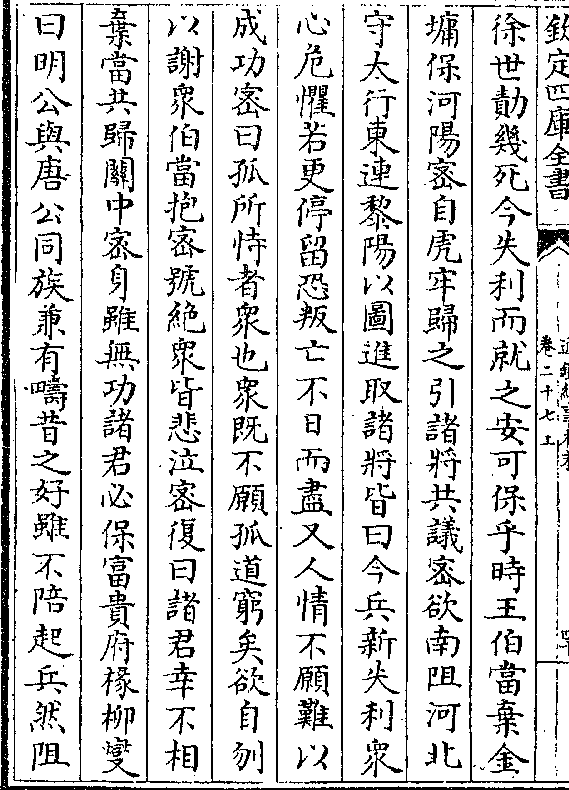 欽定四庫全書
卷二十七上
徐世勣幾死今失利而就之安可保乎時王伯當棄金
墉保河陽密自虎牢歸之引諸將共議密欲南阻河北
守太行東連黎陽以圖進取諸將皆曰今兵新失利衆
心危懼若更停留恐叛亡不日而盡又人情不願難以
成功密曰孤所恃者衆也衆既不願孤道窮矣欲自刎
以謝衆伯當抱密號絶衆皆悲泣密復曰諸君幸不相
棄當共歸關中密身雖無功諸君必保富貴府掾柳爕
曰明公與唐公同族兼有疇昔之好雖不陪起兵然阻